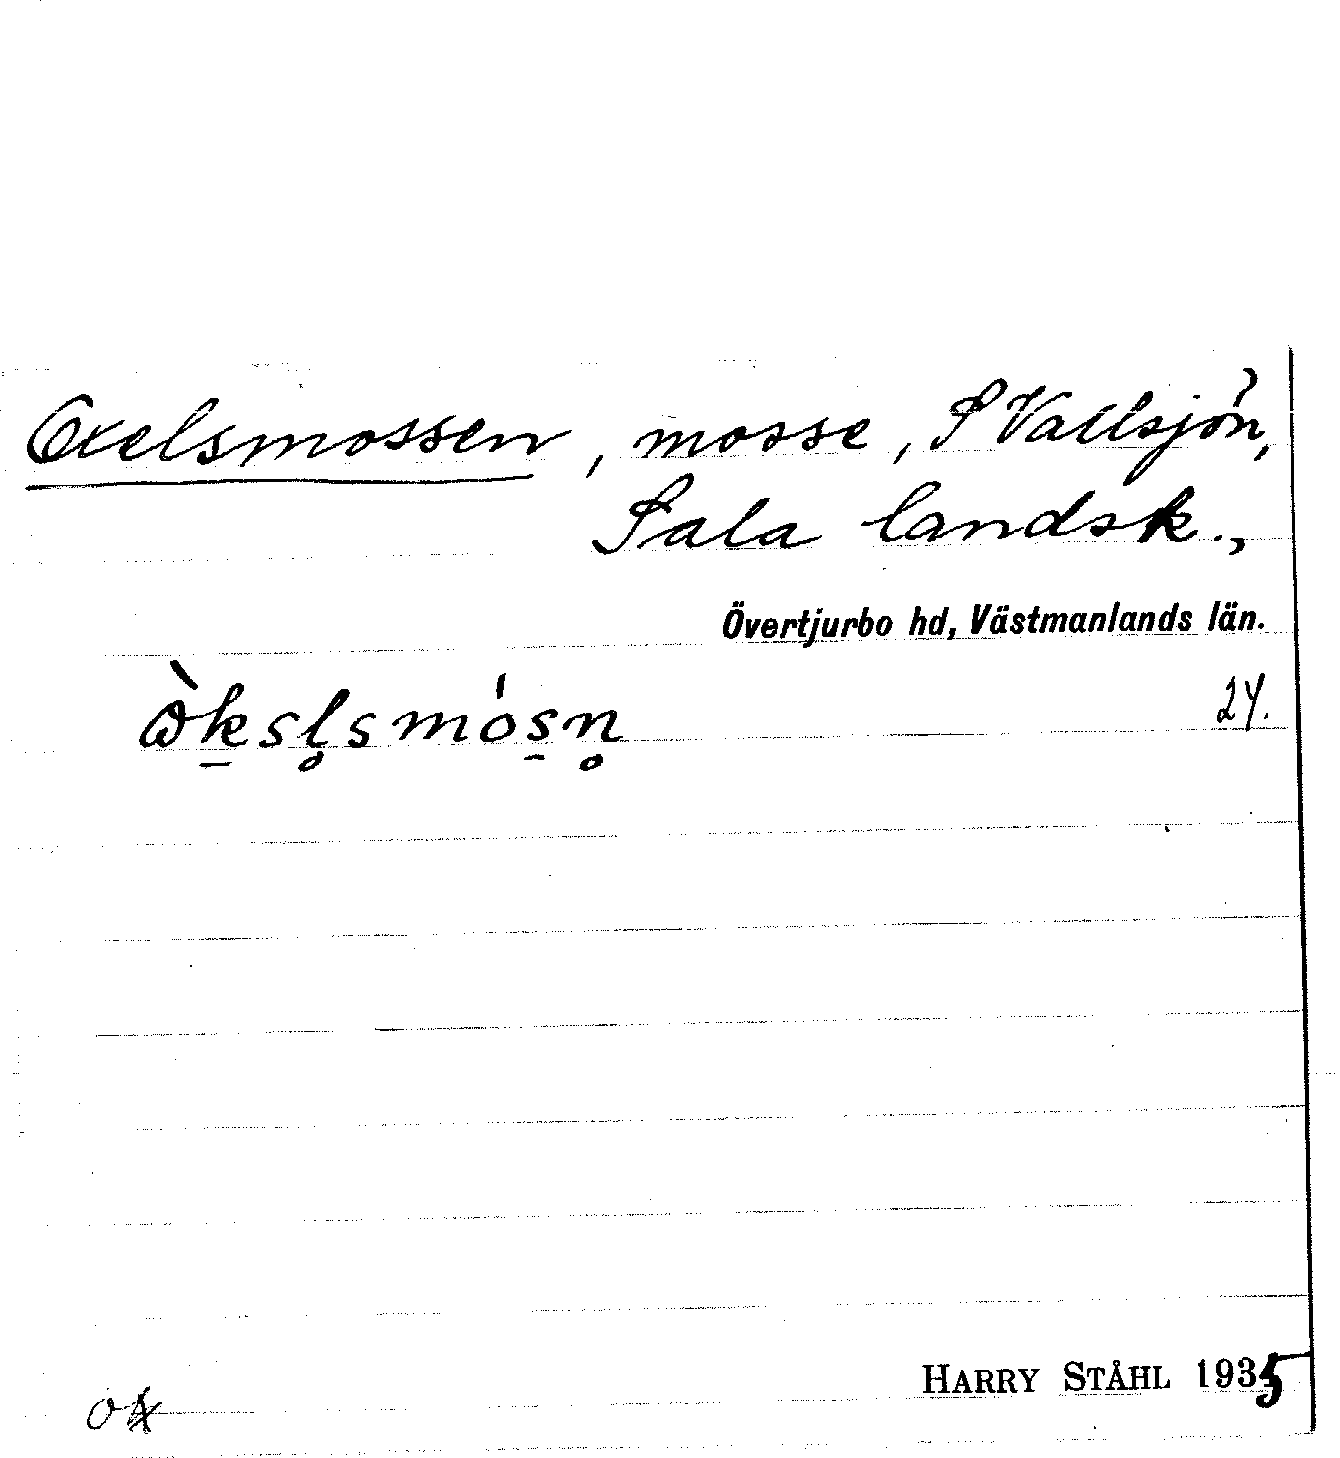 Oxelsmossen, mosse, S Vallsjön,
Sala landsk.,
Övertjurbo hd, Västmanlands län.
ò̱ḵsl̥smós̱n̥ 24.
HARRY STÅHL 1935